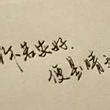 你若安好.
便是晴